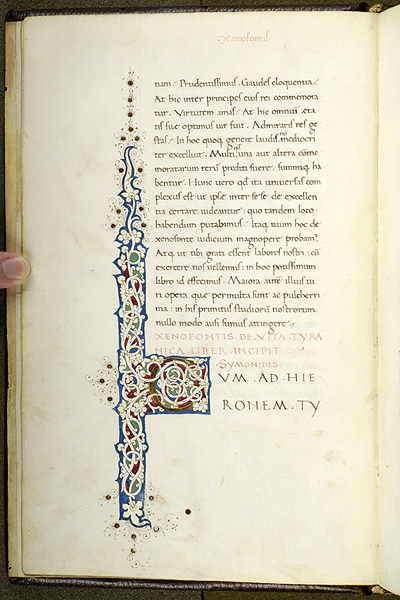 Xenofontis
tiam : Prudentissimus . Gaudes eloquentia :
At hic inter principes eius rei commemora
tur . Virtutem amas : At hic omniũ ęta
tis suę optimus uir fuit . Admiraris res ge
stas : In hoc quoq; genere laudis nõ mediocri
ter excelluit . Multi quos una aut altera cõme
moratarum rerũ prediti fuere : summiq; ha
bentur . Hunc uero qd ita uniuersas com
plexus est ut ipsę inter se se de excellen
tia certare uideantur : quo tandem loco
habendum putabimus : Itaq; tuum hoc de
xenofonte iudicium magnopere probam?
Atq; ut tibi grati essent labores nostri : cũ
exercere nos uellemus : in hoc potissimum
libro id effecimus . Maiora autẽ illius ui
ri opera quę permulta sunt ac pulcherri
ma : in his primitiis studiorũ nostrorum
nullo modo ausi sumus attingere :
XENOFONTIS DE VITA TYRA
NICA LIBER INCIPIT
Symonides
VM . AD . HIE
RONEM . TY